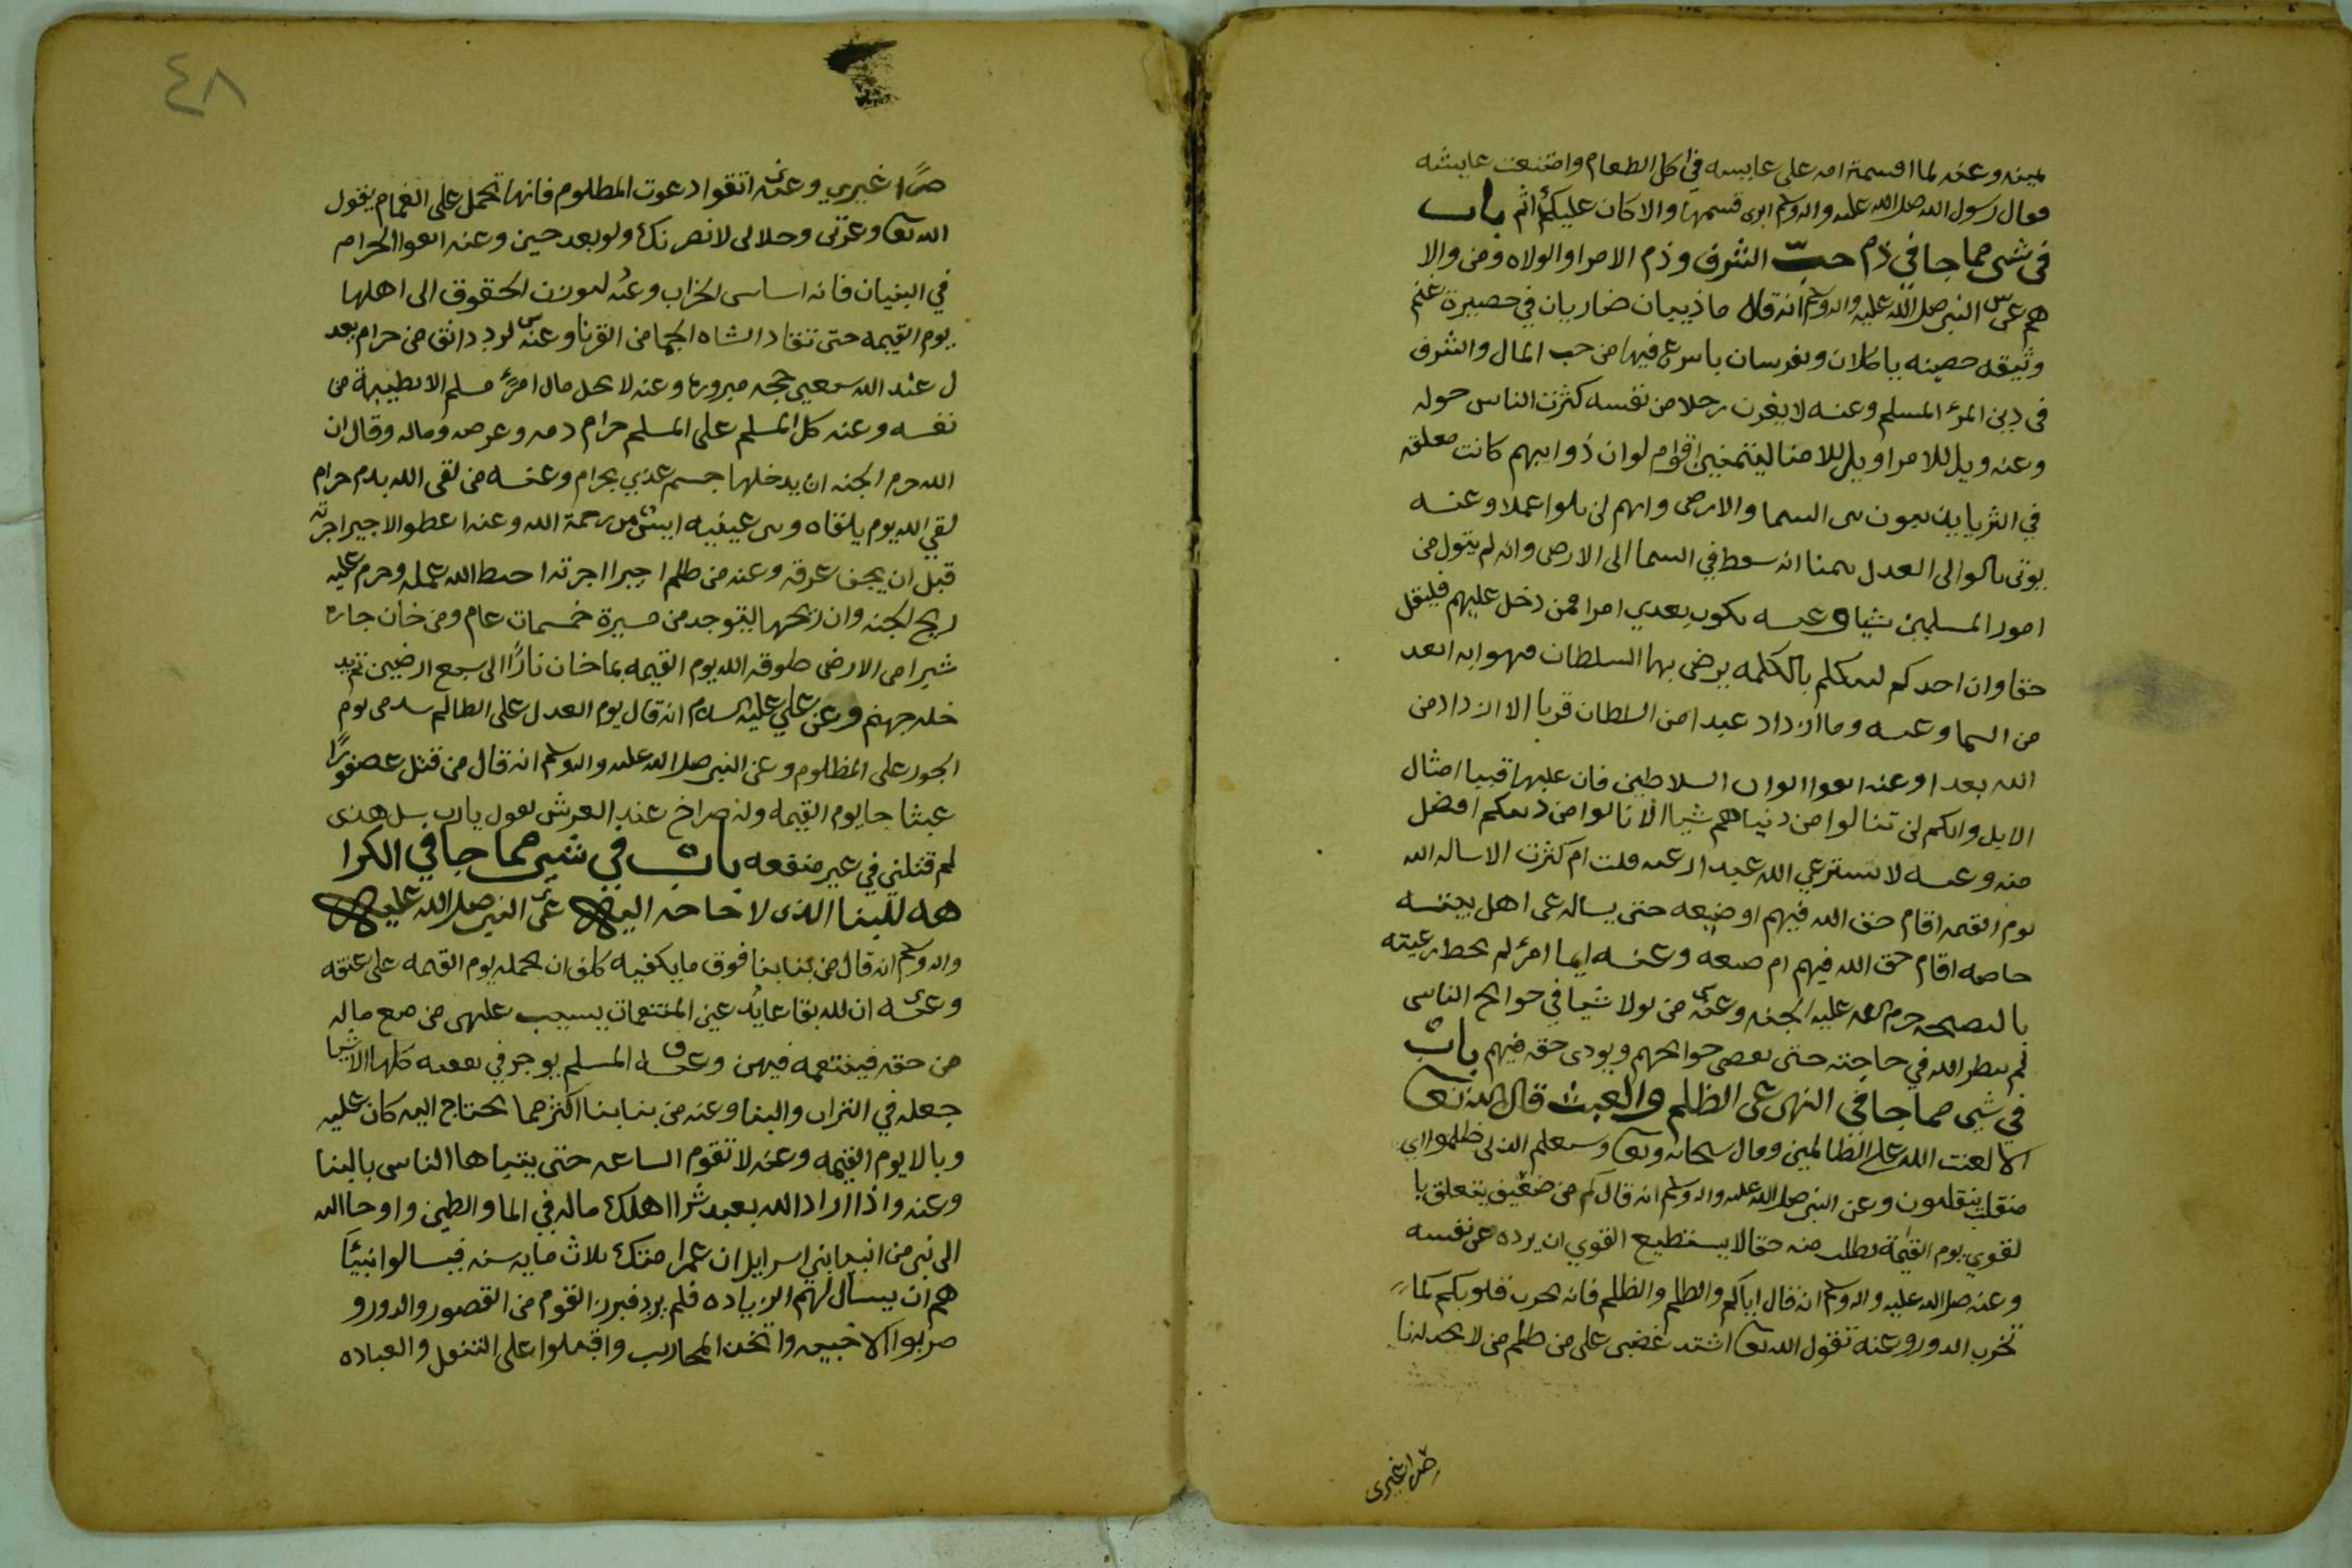 يمينه وعنه لما اقسمة امه على عايشه في اكل الطعام وامتنعت عايشه
فقال رسول الله صلى الله عليه واله وسلم ابرى قسمها والا كان عليكى اثم باب
في شى مما جا في ذم حب الشرف وذم الامرا والولاه ومن والا
هم عن النبى صلى الله عليه واله وسلم انه قال ماذيبان ضاريان في حصيرة غنم
وثيقه حصينه ياكلان ويفرسان باسرع فيها من حب المال والشرف
في دين المرء المسلم وعنه لا يغرن رجلا من نفسه كثرت الناس حوله
وعنه ويل للامرا ويل للامنا ليتمنين اقوام لو ان ذوايبهم كانت معلقه
في الثريا بين السما والارض وانهم لن يلوا عملا وعنه
يوتى بالوالى العدل يتمنا انه سقط في السما الى الارض وانه لم يتول من
امور المسلمين شيا وعنه يكون بعدي امرا فمن دخل عليهم فليقل
حقا وان احدكم ليتكلم بالكلمه يرضى بها السلطان فهو ابه ابعد
من السما وعنه وما ازداد عبدا من السلطان قربا الا ازداد من
الله بعدا وعنه اتقوا ابواب السلاطين فان عليها قبيا امثال
الابل وانكم لن تنالوا من دنياهم شيا الا نالوا من دينكم افضل
منه وعنه لا يسترعي الله عبدا رعيه قلت ام كثرت الا ساله الله
يوم القيمه اقام حق الله فيهم او ضيعه حتى يساله عن اهل بيته
خاصه اقام حق الله فيهم ام ضيعه وعنه ايما امرئ لم يحط رعيته
بالنصيحه حرم الله عليه الجنه وعنه من تولا شيا في حوايج الناس
لم ينظر الله في حاجته حتى يقضى حوايجهم ويودى حقه فيهم باب
في شى مما جا في النهى عن الظلم والعبث قال الله تعالى
الا لعنت الله على الظالمين وقال سبحانه وتعالى وسيعلم الذين ظلموا اي
منقلب ينقلبون وعن النبى صلى الله عليه واله وسلم انه قال كم من ضعيف يتعلق با
لقوي يوم القيمة يطلب منه حقا لا يستطيع القوي ان يرده عن نفسه
وعنه صلى الله عليه واله وسلم انه قال اياكم والظلم والظلم فانه يخرب قلوبكم كما
تخرب الدور وعنه تقول الله تعالى اشتد غضبى على من ظلم من لا يجد له نا
صرا غيرى
٤٨
صرا غيري وعنه اتقوا دعوت المظلوم فانها تحمل على الغمام يقول
الله تعالى وعزتى وجلالى لانصرنك ولو بعد حين وعنه اتقوا الحرام
في البنيان فانه اساس الخراب وعنه ليودن الحقوق الى اهلها
يوم القيمه حتى تنقاد الشاه الجما من القرنا وعنه لرد دانق من حرام يعد
ل عند الله سبعين حجه مبروره وعنه لا يحل مال امرئ مسلم الا بطيبة من
نفسه وعنه كل المسلم على المسلم حرام دمه وعرضه وماله وقال ان
الله حرم الجنه ان يدخلها جسم غذي بحرام وعنه من لقى الله بدم حرام
لقي الله يوم يلقاه وبين عينيه ايس من رحمة الله وعنه اعطوا الاجير اجرته
قبل ان يجف عرقه وعنه من ظلم اجيرا اجرته احبط الله عمله وحرم عليه
ريح الجنه وان ريحها ليتوجد من مسيرة خمسمات عام ومن خان جاره
شبرا من الارض طوقه الله يوم القيمه بما خان نارًا الى سبع ارضين ثم يد
خله جهنم وعن علي عليه السلام انه قال يوم العدل على الظالم اشد من يوم
الجور على المظلوم وعن النبى صلى الله عليه واله وسلم انه قال من قتل عصفورًا
عبثا جا يوم القيمه وله صراخ عند العرش يقول يارب سل هذى
لم قتلني في غير منفعه باب في شى مما جا في الكرا
هه للبنا الذى لا حاجه اليه عن النبى صلى الله عليه
واله وسلم انه قال من بنا بنا فوق ما يكفيه كلف ان يحمله يوم القيمه على عنقه
وعنه ان لله بقاعا
من حقه فينتقمه فيهن وعنه المسلم يوجر في نفقته كلها الا شيا
جعله في التراب والبنا وعنه من بنا بنا اكثر مما يحتاج اليه كان عليه
وبالا يوم القيمه وعنه لا تقوم الساعه حتى يتباها الناس بالبنا
وعنه واذا اراد الله بعبد شرا اهلك ماله في الما والطين واوحا الله
الى نبى من انبيا بني اسرايل ان عمرا متك ثلاث مايه سنه فسالوا نبيئا
هم ان يسال لهم الزياده فلم يرد فبرز القوم من القصور والدور و
ضربوا الاخبيه واتخذ المحاريب واقبلوا على التنفل والعباده